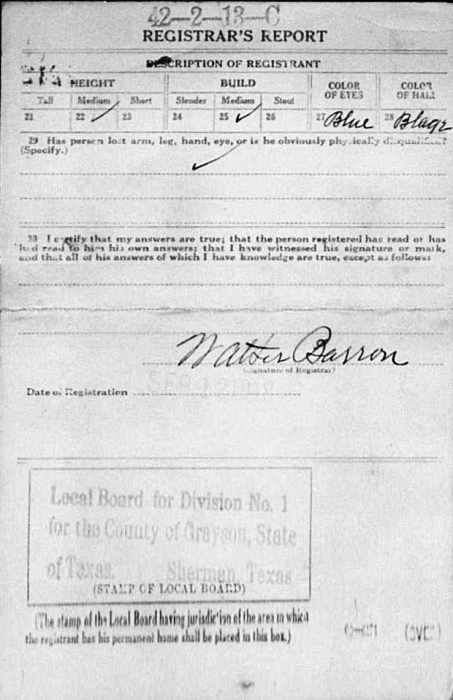 42-2-13-C
REGISTRAR'S REPORT
DESCRIPTION OF REGISTRANT
HEIGHT BUILD COLOR OF EYES COLOR OF HAIR
Tall Medium Short Slender Medium Stout
21 22 ✓ 23 24 25 ✓ 26 27 Blue 28
29 Has person lost arm, leg, hand, eye, or is he obviously physically disqualified?
(Specify.)
30 I certify that my answers are true; that the person registered has read or has
had read to him his own answers; that I have witnessed his signature or mark,
and that all of his answers of which I have knowledge are true, except as follows:
Walter Barron
(Signature of Registrar)
Date of Registration
Local Board for Division No. 1
for the County of Grayson, State
of Texas. Sherman, Texas
(STAMP OF LOCAL BOARD)
(The stamp of the Local Board having jurisdiction of the area in which
the registrant has his permanent home shall be placed in this box.)
(OVER)